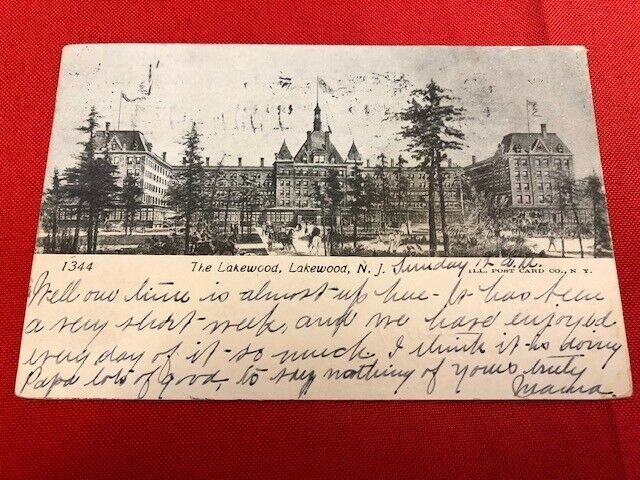 1344 The Lakewood, Lakewood, N. J. Sunday A.M. ILL. POST CARD CO., N. Y.
Well our time is almost up here - It has been
a very short week, and we have enjoyed
every day of it - so much. I think it is doing
Papa lots of good, to say nothing of yours truly
Mama.